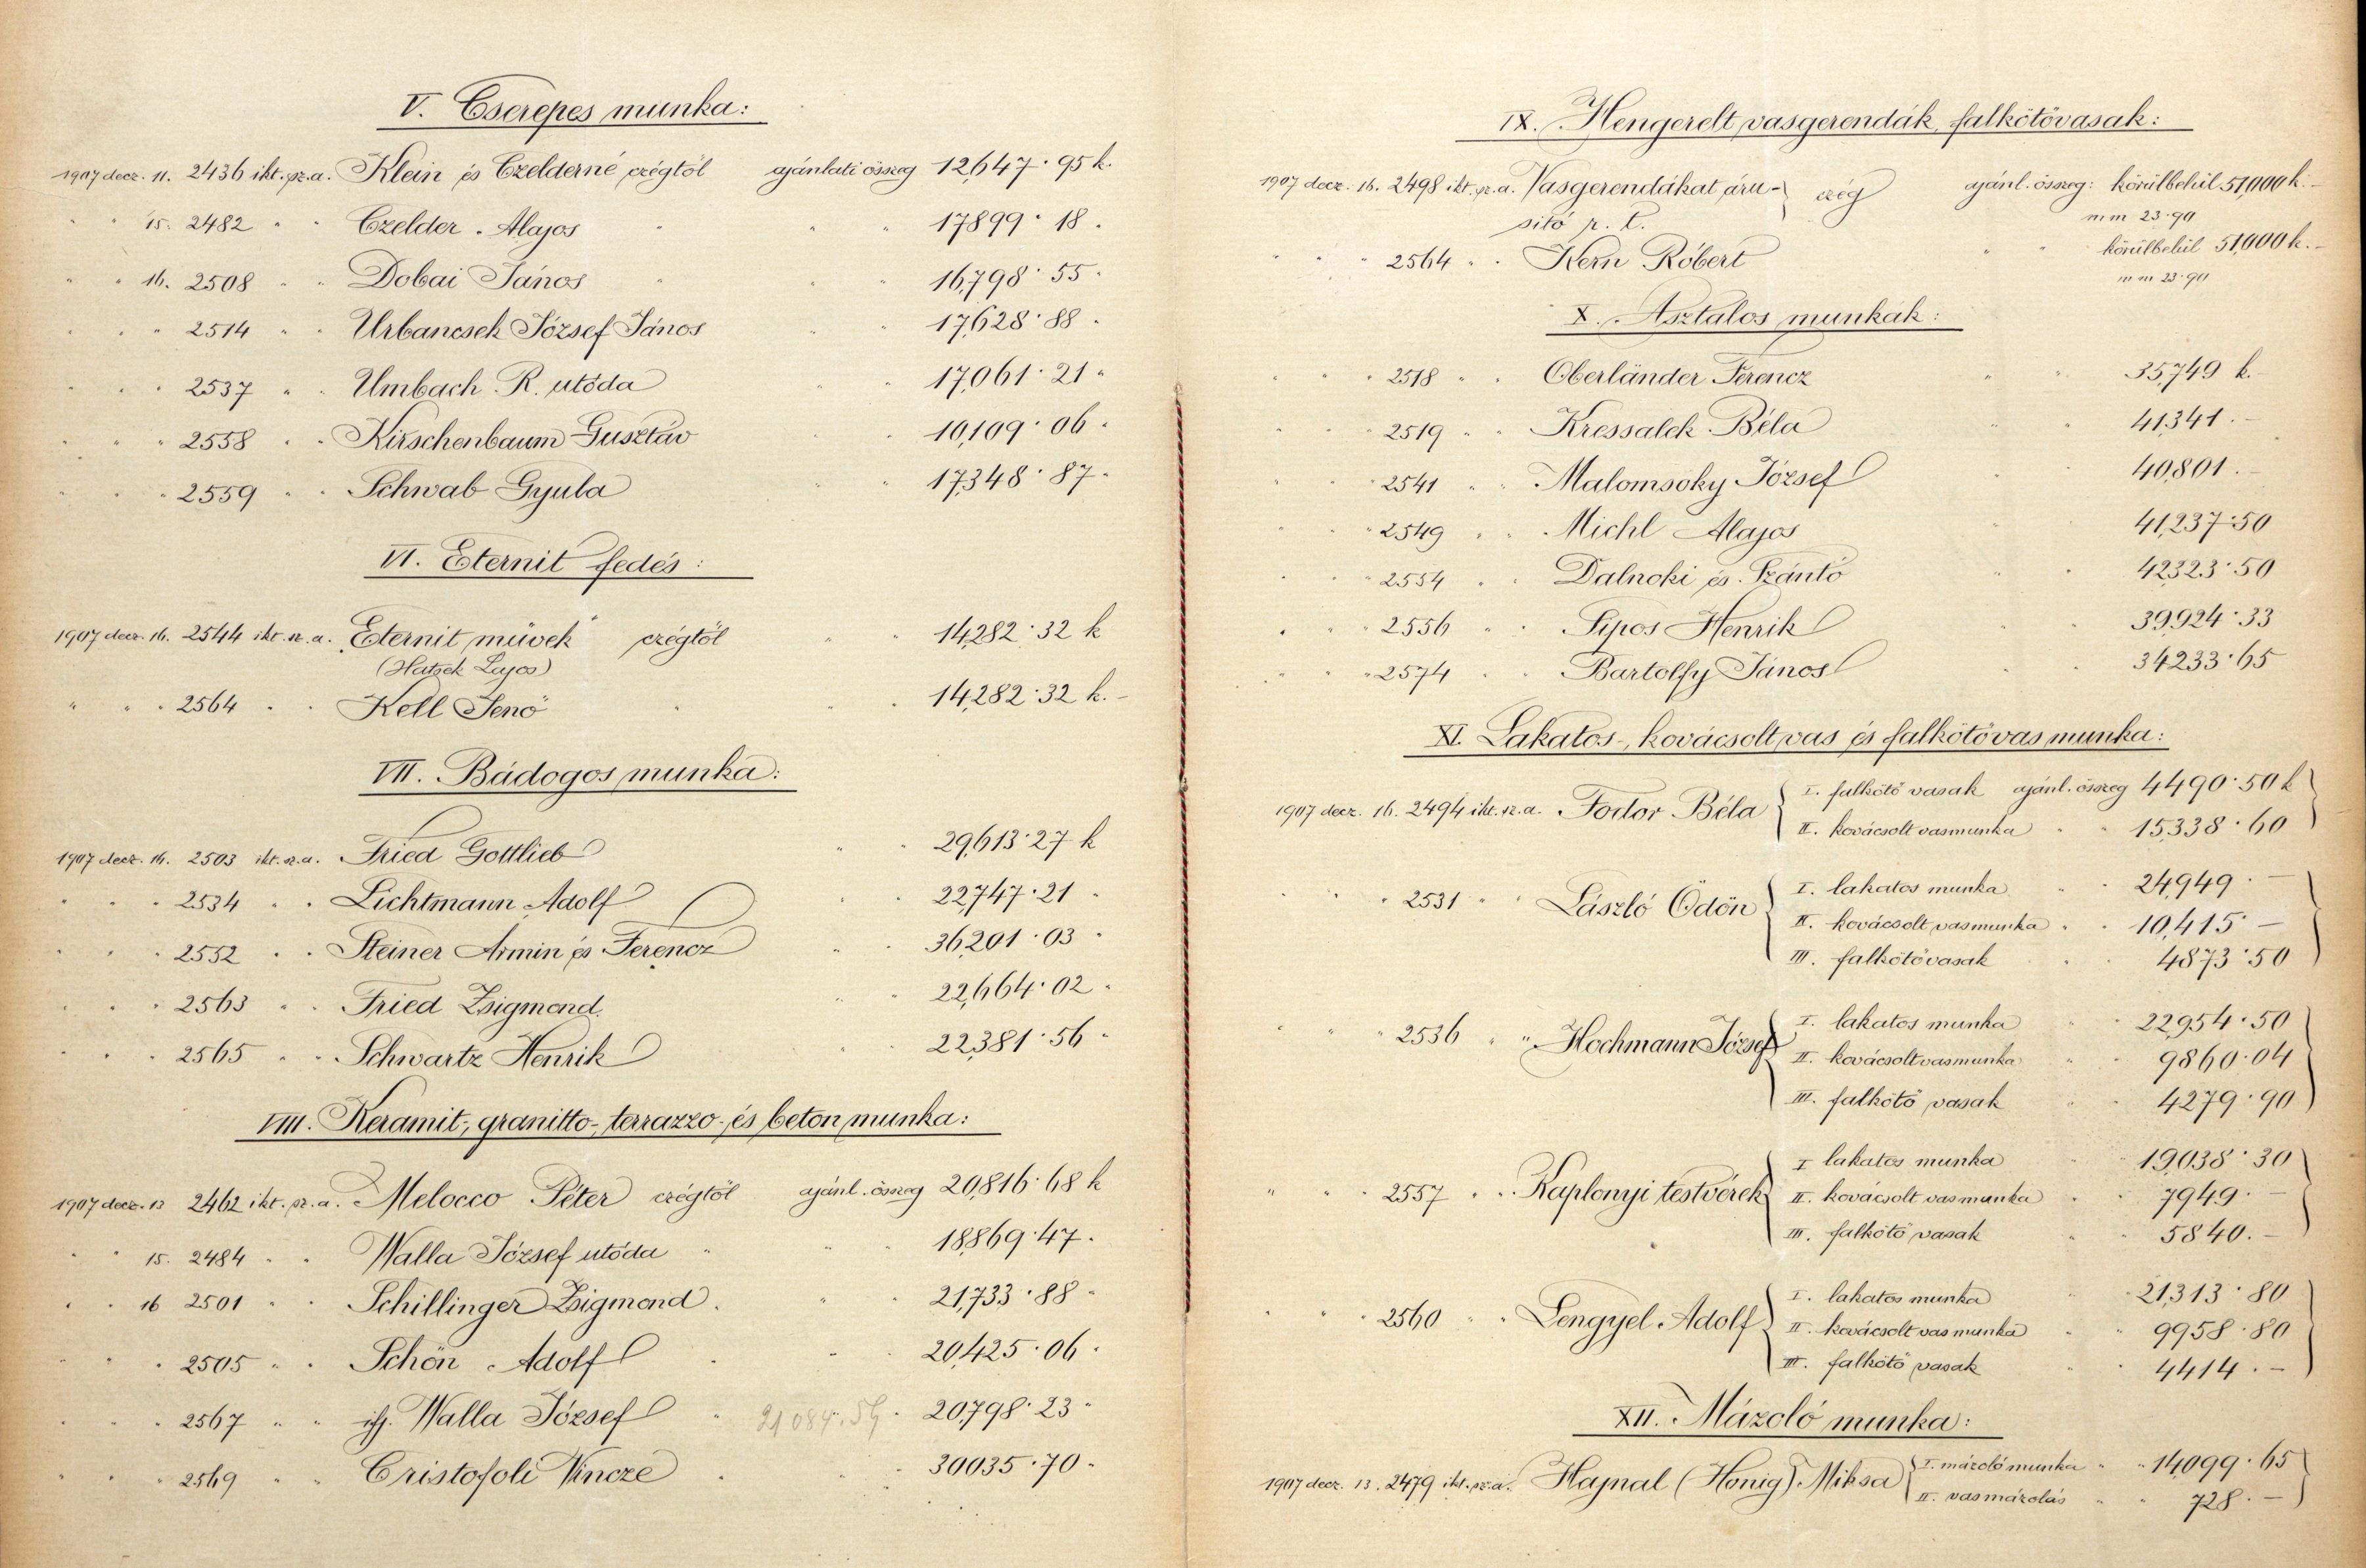 V. Cserepes munka:
1907 decz. 11. 2436 ikt. sz. a. Klein és Czelderné czégtől ajánlati összeg 12,647·95 k.
" " 15. 2482 " " Czelder Alajos " " " 17899·18 "
" " 16. 2508 " " Dobai János " " " 16,798·55 "
" " " 2514 " " Urbancsek József János " " 17,628·88 "
" " " 2537 " " Umbach R. utóda " " 17,061·21 "
" " " 2558 " " Kirschenbaum Gusztáv " " 10,109·06 "
" " " 2559 " " Schwab Gyula " " 17,348·87 "
VI. Eternit fedés:
1907 decz. 16. 2544 ikt. sz. a. "Eternit művek" czégtől " " 14,282·32 k
(Hatsek Lajos)
" " " 2564 " " Kell Jenő " " " 14,282·32 k.-
VII. Bádogos munka:
1907 decz. 16. 2503 ikt. sz. a. Fried Gottlieb " " 29,613·27 k
" " " 2534 " " Lichtmann Adolf " " 22,747·21 "
" " " 2552 " " Steiner Ármin és Ferencz " " 36,201·03 "
" " " 2563 " " Fried Zsigmond " " 22,664·02 "
" " " 2565 " " Schwartz Henrik " " 22,381·56 "
VIII. Keramit-, granitto-, terrazzo- és beton munka:
1907 decz. 13 2462 ikt. sz. a. Melocco Péter czégtől ajánl. összeg 20,816·68 k
" " 15. 2484 " " Walla József utóda " " " 18,869·47 "
" " 16 2501 " " Schillinger Zsigmond " " 21,733·88 "
" " " 2505 " " Schön Adolf " " " 20,425·06 "
" " " 2567 " " ifj. Walla József " 21084.59 " 20,798·23 "
" " " 2569 " " Cristofoli Vincze " " " 30035·70 "
IX. Hengerelt vasgerendák, falkötővasak:
1907 decz. 16. 2498 ikt. sz. a. Vasgerendákat áru- } czég ajánl. összeg: körülbelül 51,000 k.-
sító r. t. mm 23·90
" " " 2564 " " Kern Róbert " " körülbelül 51,000 k.-
mm 23·90
X. Asztalos munkák:
" " " 2518 " " Oberländer Ferencz " " 35,749 k.-
" " " 2519 " " Kressalek Béla " " 41,341.-
" " " 2541 " " Malomsoky József " " 40,801.-
" " " 2549 " " Michl Alajos " 41,237·50
" " " 2554 " " Dalnoki és Szántó " " 42,323·50
" " " 2556 " " Sipos Henrik " " 39,924·33
" " " 2574 " " Bartolfy János " " 34233·65
XI. Lakatos-, kovácsolt vas és falkötővas munka:
1907 decz. 16. 2494 ikt. sz. a. Fodor Béla { I. falkötő vasak ajánl. összeg 4490·50 k }
II. kovácsolt vasmunka " " 15,338·60
" " " 2531 " " László Ödön { I. lakatos munka " " 24,949·- }
II. kovácsolt vasmunka " " 10,415·-
III. falkötővasak " " 4873·50
" " " 2536 " " Hochmann József { I. lakatos munka " " 22,954·50 }
II. kovácsolt vasmunka " " 9860·04
III. falkötő vasak " " 4279·90
" " " 2557 " " Kaplonyi testvérek { I lakatos munka " " 19,038·30 }
II. kovácsolt vasmunka " " 7949·-
III. falkötő vasak " " 5840.-
" " " 2560 " " Lengyel Adolf { I. lakatos munka " " 21,313·80 }
II. kovácsolt vas munka " " 9958·80
III. falkötő vasak " " 4414.-
XII. Mázoló munka:
1907 decz. 13. 2479 ikt. sz. a. Hajnal (Honig) Miksa { I. mázoló munka " " 14,099·65 }
II. vasmázolás " " 728.-